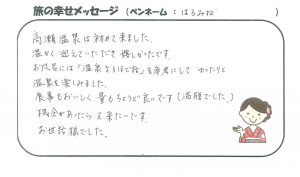 旅の幸せメッセージ (ペンネーム : はるみね )
高瀬温泉は初めて来ました。
温かく迎えていただき嬉しかったです。
お風呂には「温泉なるほど版」を参考にして ゆったりと
温泉を楽しみました。
食事もおいしく 量もちょうど良いです(満腹でした。)
機会があったら 又 来たいです。
お世話様でした。